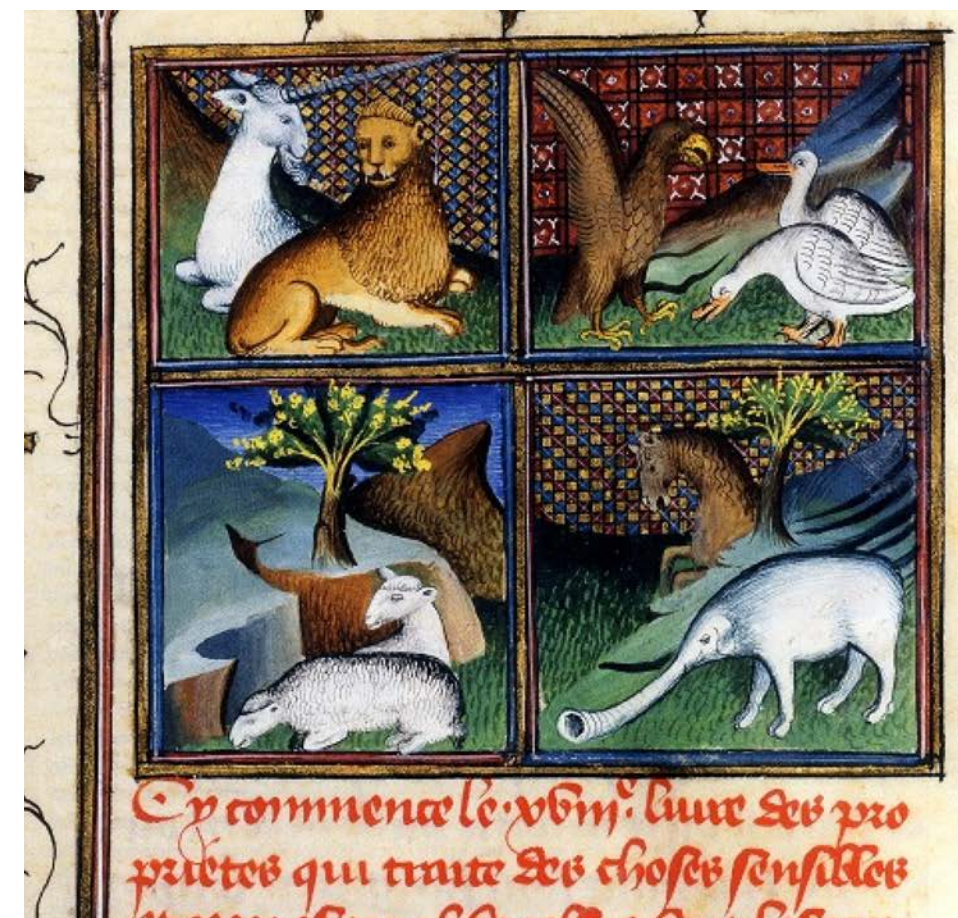 Cy commence le .xviii.e livre des pro
prietes qui traite des choses sensibles